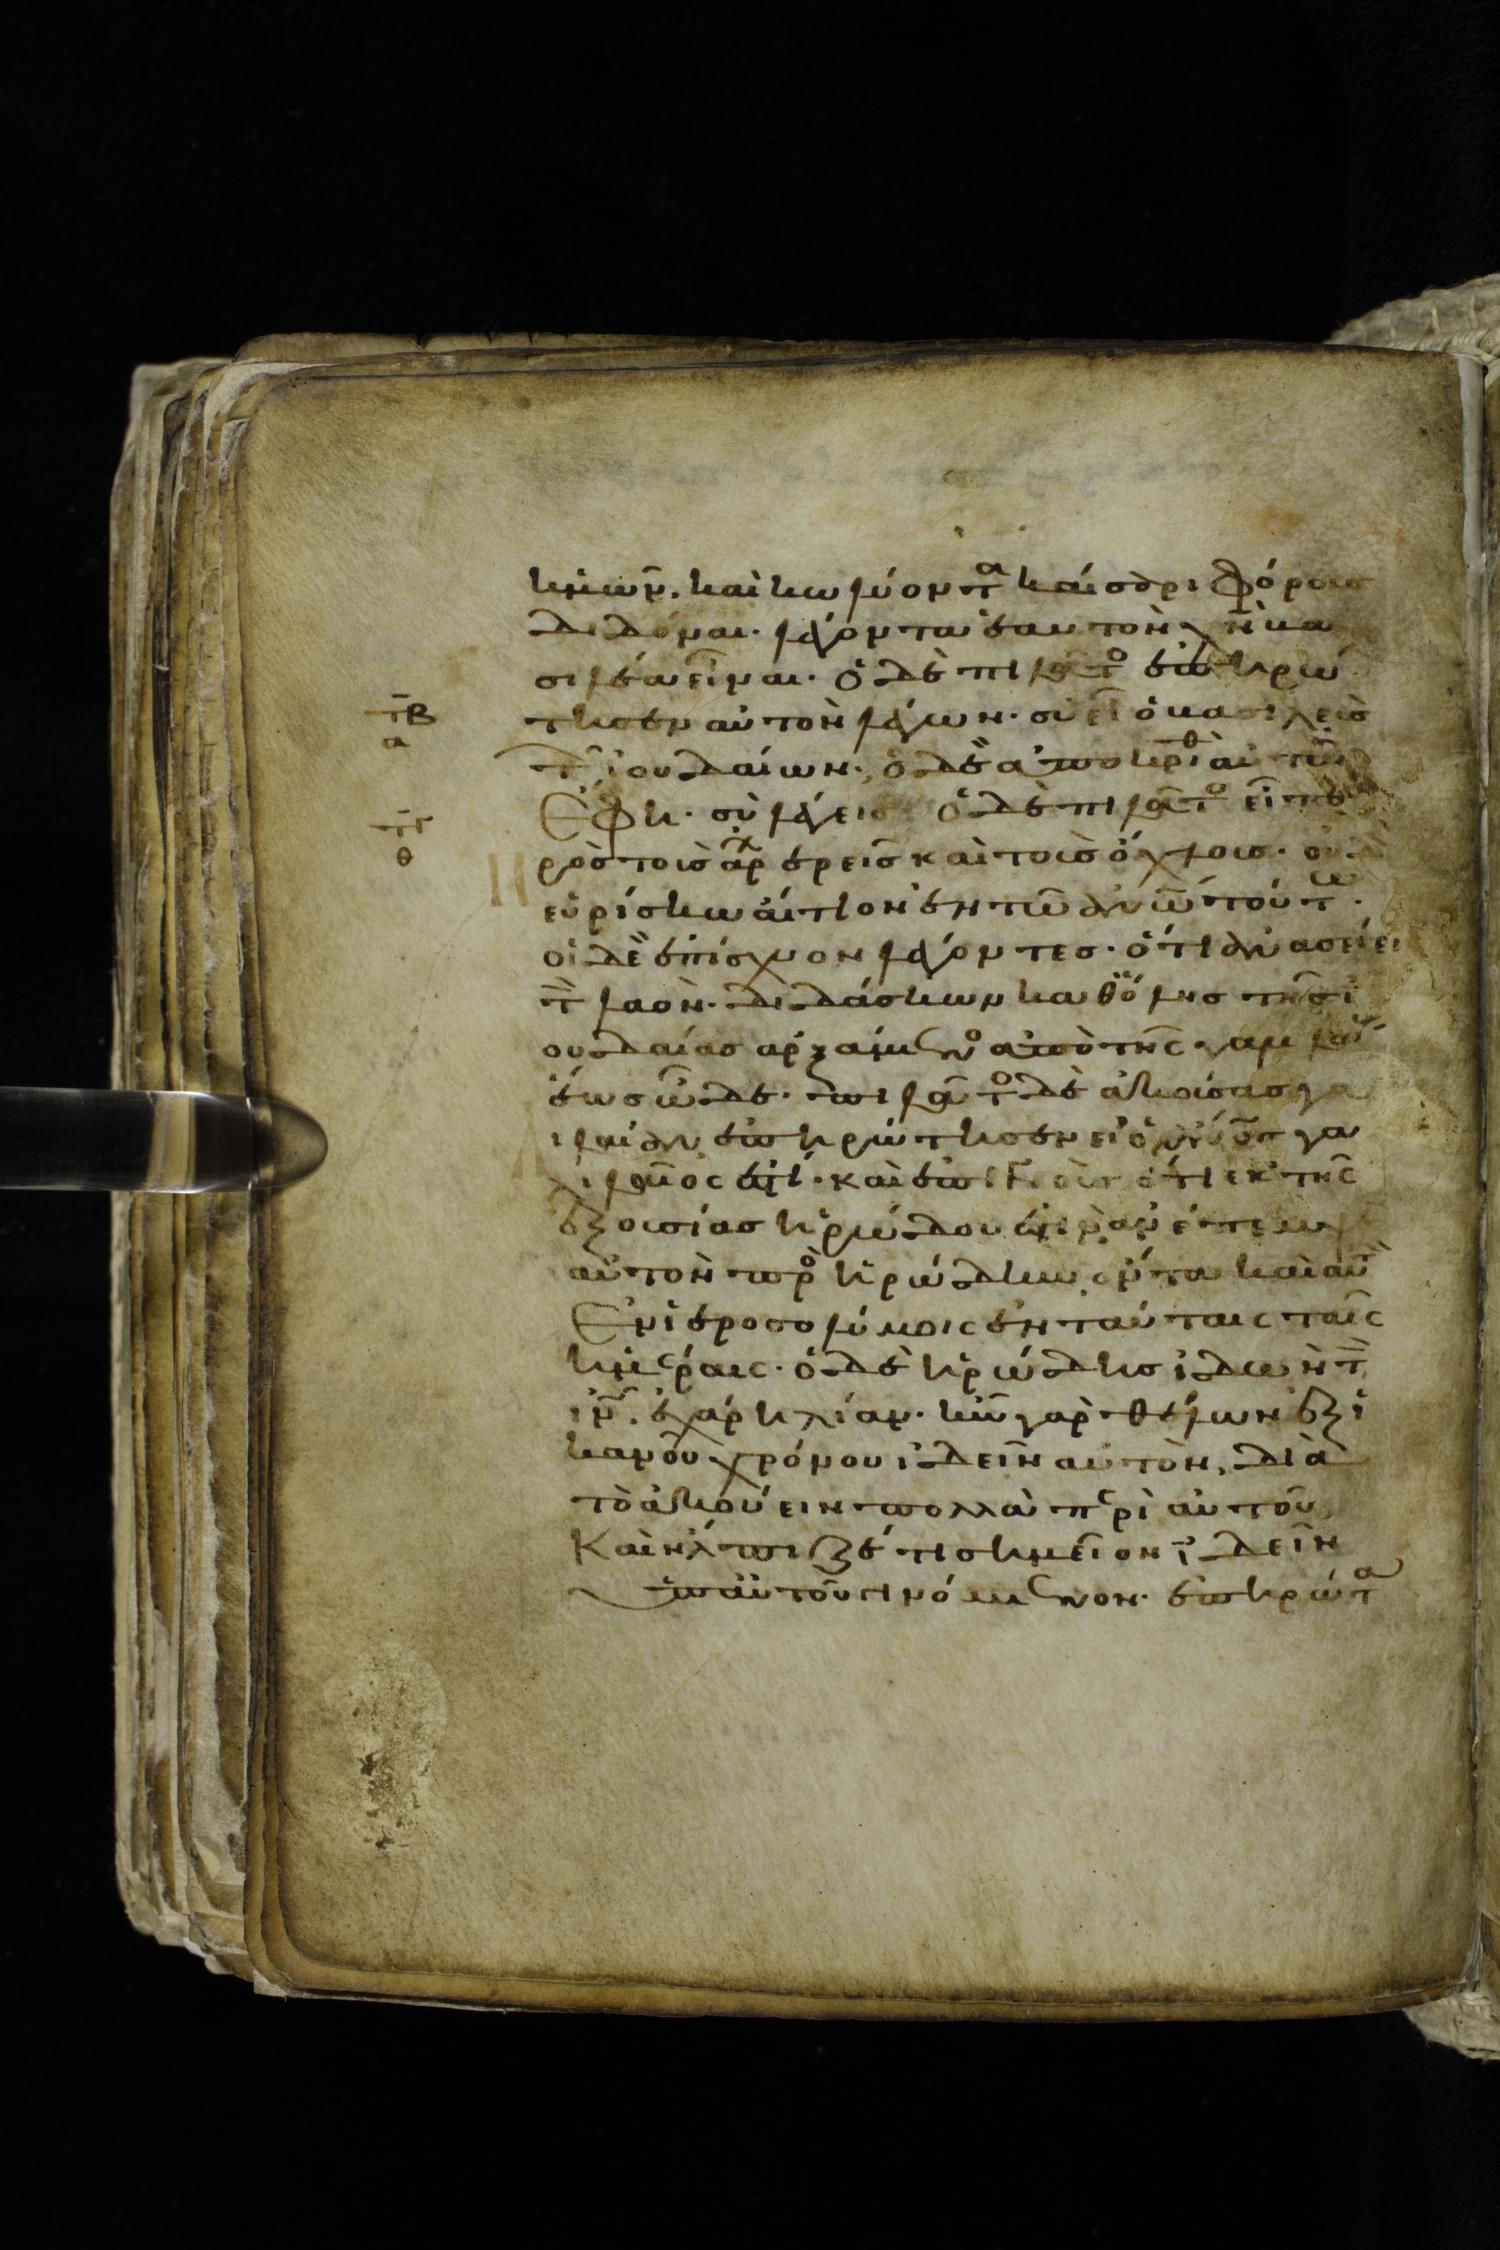 ἡμῶν. καὶ κωλύοντα καίσαρι φόρους
διδόναι. λέγοντα ἑαυτὸν χν βα
σιλέα εἶναι. ὁ δὲ πιλᾶτο ἐπηρώ
τησεν αὐτὸν λέγων. σὺ εἶ ὁ βασιλεὺς
τβ
α
τ ἰουδαίων. ὁ δὲ ἀποκριθ αὐτῶ
Ἔφη. σὺ λέγεις ὁ δὲ πιλᾶτο εἶπε
τγ
θ
ρὸς τοὺς ἀρχερεῖς καὶ τοὺς ὄχλους.
εὑρίσκω αἴτιον ἐν τῶ ανω τούτω.
οἱ δὲ ἐπίσχυον λέγοντες. ὅτι ἀνασείει
τ λαὸν. διδάσκων καθ ὅλης τῆς ἰ
ουδαίας ἀρξάμενο ἀπὸ τῆς γαλιλαί
ἕως ὧδε. πιλᾶτο δὲ ἀκούσας γα
ιλαίαν ἐπηρώτησεν εἰ ὁ ανος γα
λιλαῖός ἐστι. καὶ ἐπιγνοὺς ὅτι ἐκ τῆς
ἐξουσίας ἡρώδου ἐστὶν ἀνέπεμψ
αὐτὸν πρὸ ἡρώδην ὄντα καὶ αὐτ
Ἐν ἱεροσολύμοις ἐν ταύταις ταῖς
ἡμέραις. ὁ δὲ ἡρώδης ἰδὼν τ
ιν. ἐχάρη λίαν. ἦν γὰρ θέλων ἐξ ἱ
κανοῦ χρόνου ἰδεῖν αὐτὸν, διὰ
τὸ ἀκούειν πολλὰ περὶ αὐτοῦ,
Καὶ ἤλπιζέ τι σημεῖον ἰδεῖν
ὑπ αὐτοῦ γινόμενον. ἐπηρώτα